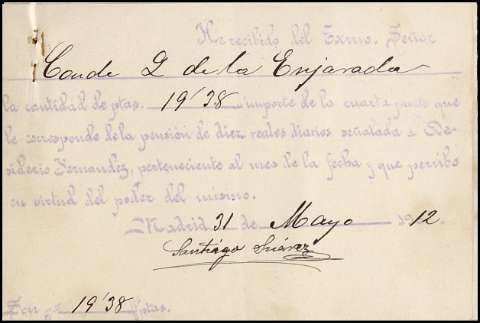 He recibido del Excmo. Señor
Conde D de la Enjarada
la cantidad de ptas. 19'38 importe de la cuarta parte que
le corresponde de la pensión de diez reales diarios señalada a De-
siderio Fernandez, perteneciente al mes de la fecha y que percibo
en virtud del poder del mismo.
Madrid 31 de Mayo 1912.
Santiago Suárez
Son 19'38 ptas.